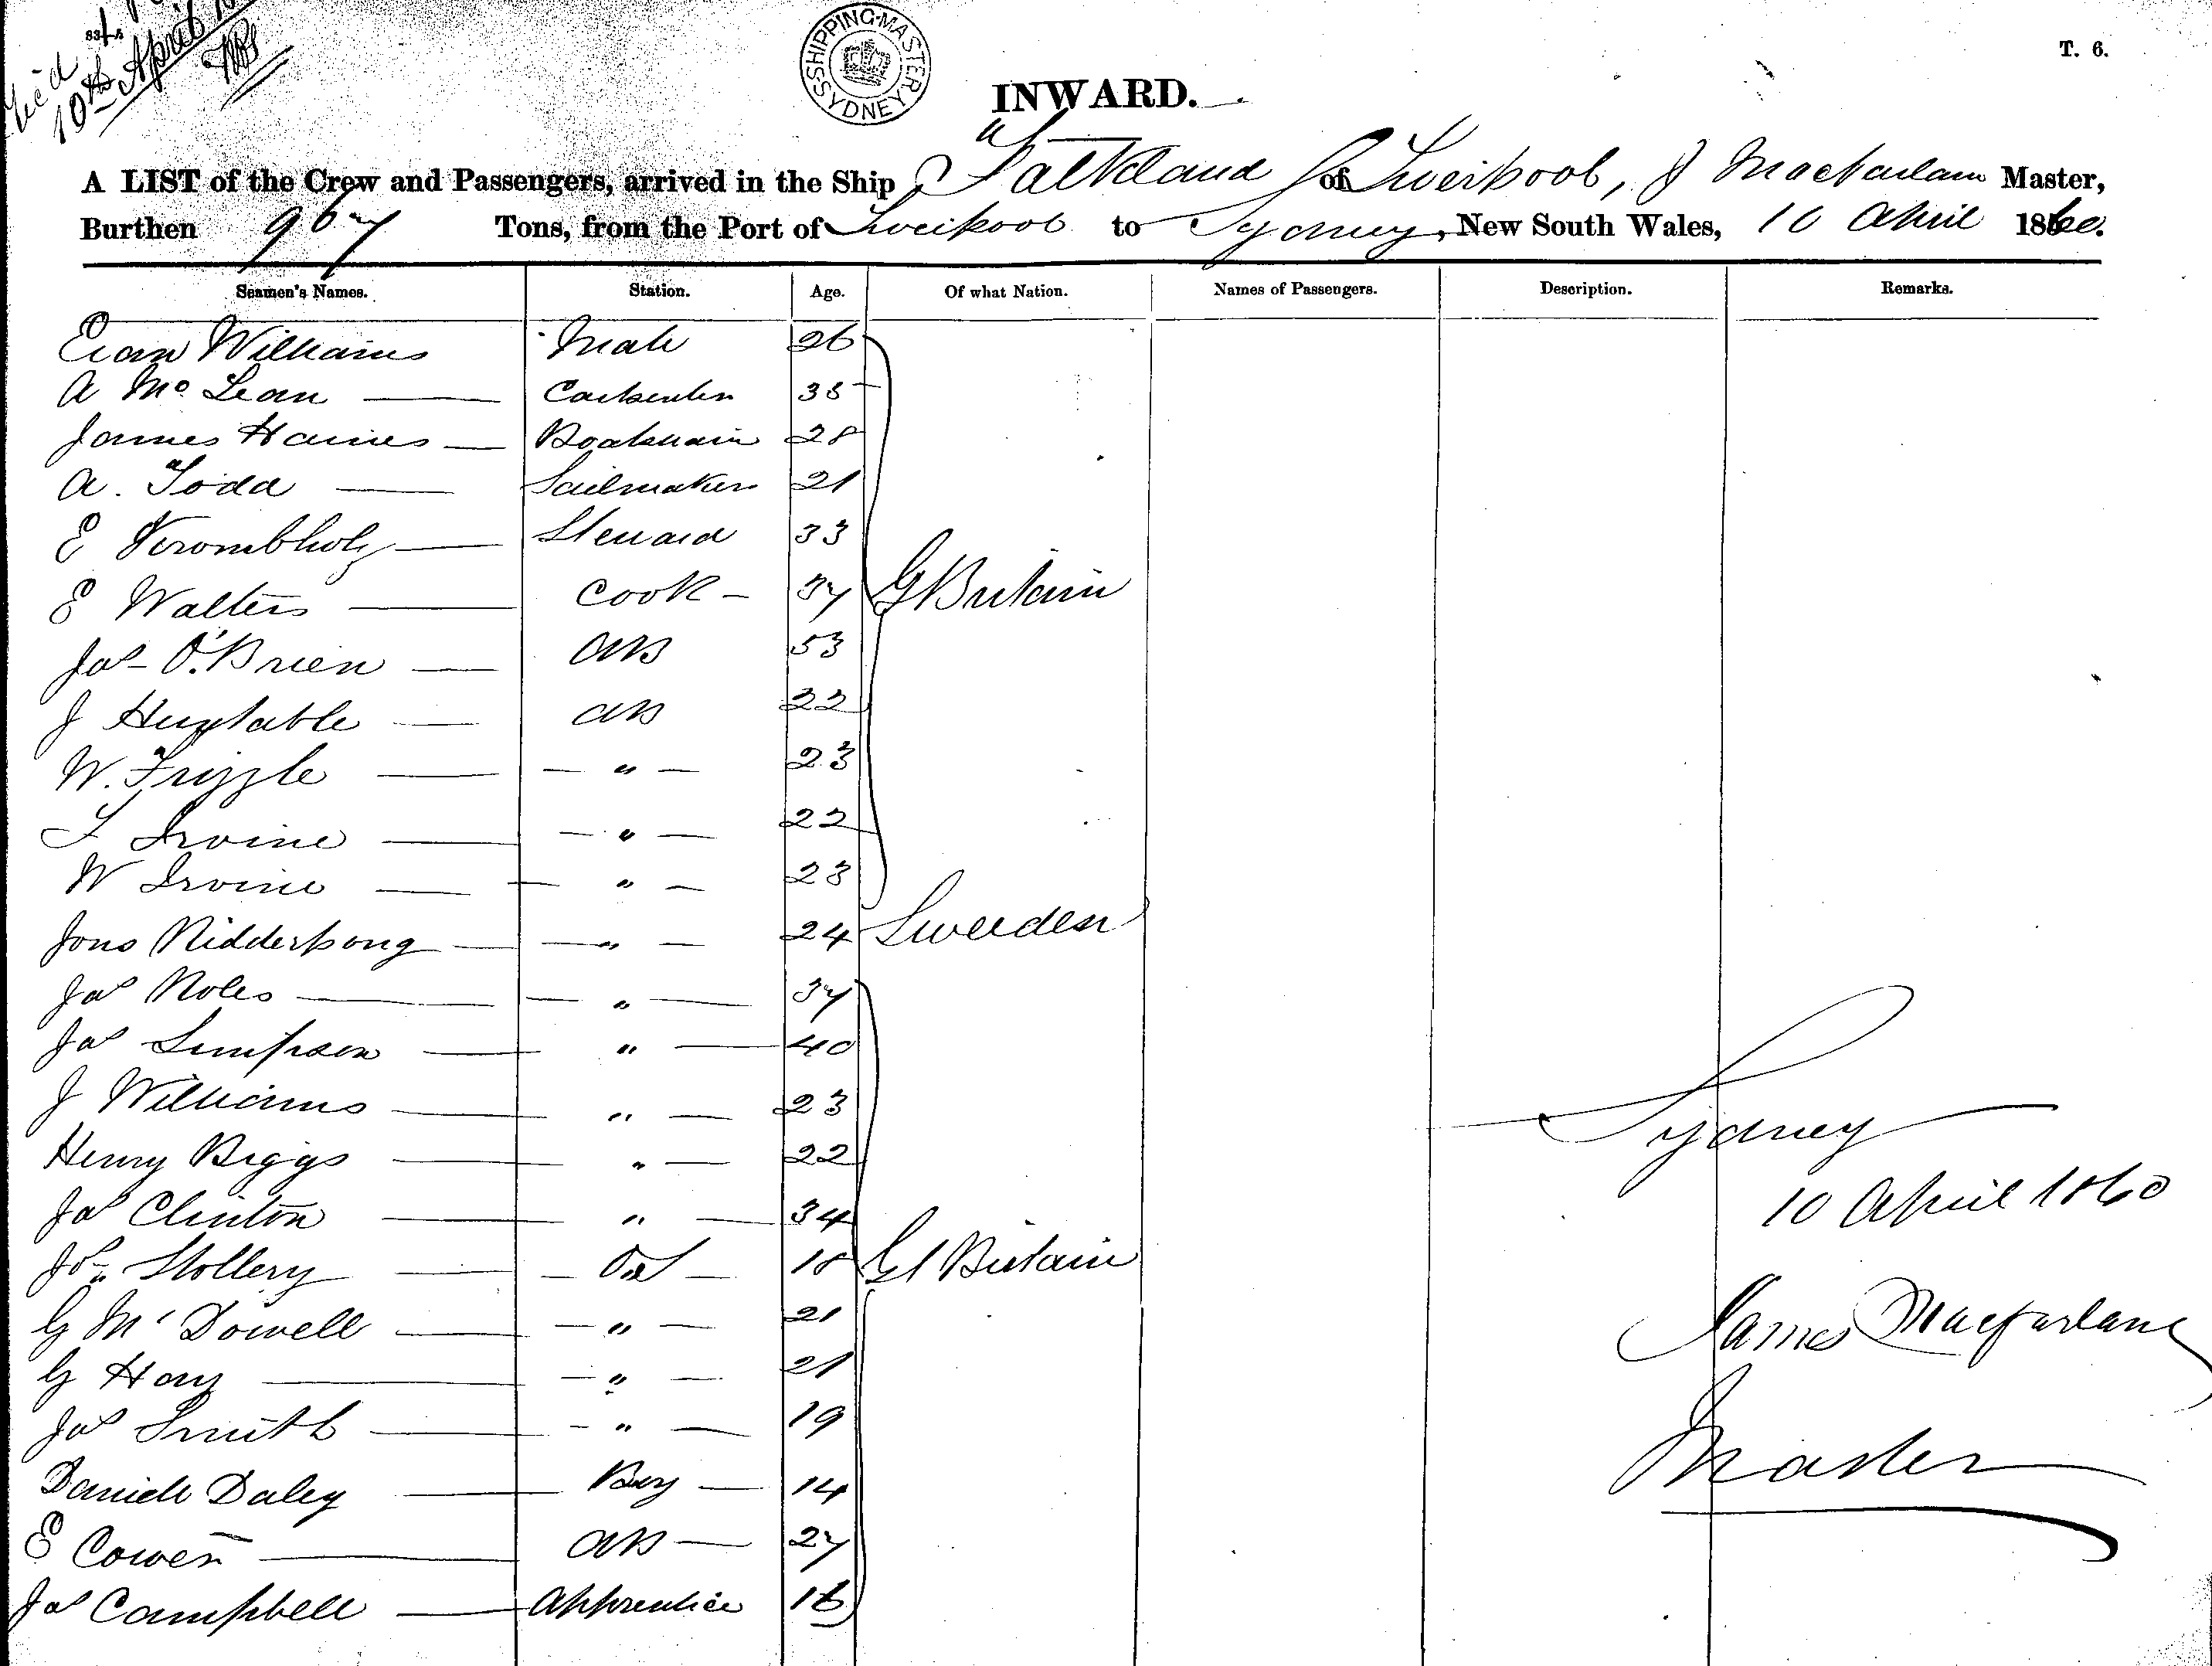 10th April
83/4
SHIPPING MASTER SYDNEY
T. 6.
INWARD.
A LIST of the Crew and Passengers, arrived in the Ship "Falkland of Liverpool, J Macfarlane Master,
Burthen 967 Tons, from the Port of Liverpool to Sydney, New South Wales, 10 April 1860.
Seamen's Names. Station. Age. Of what Nation. Names of Passengers. Description. Remarks.
Evan Williams Mate 26
A McLean — Carpenter 38
James Haines — Boatswain 28
A. Todd — Sailmaker 21
E Krombholz — Steward 33
E Walters — Cook — 37 G Britain
Jas O'Brien — AB 53
J Huxtable — AB 22
W. Frizzle — — " — 23
T Irvine — — " — 22
W Irvine — — " — 23
Jons Nidderpong — — " — 24 Sweeden
Jas Noles — — " — 37
Jas Simpson — " — 40
J Williams — " — 23
Henry Biggs — " — 22
Jas Clinton — " — 34
Jos Stollery — — OS — 18 Gt Britain
G McDowell — — " — 21
G Hay — — " — 21
Jas Smith — — " — 19
Daniell Daley — Boy — 14
E Cowen — AB — 27
Jas Campbell — Apprentice 16
Sydney
10 April 1860
James Macfarlane
Master